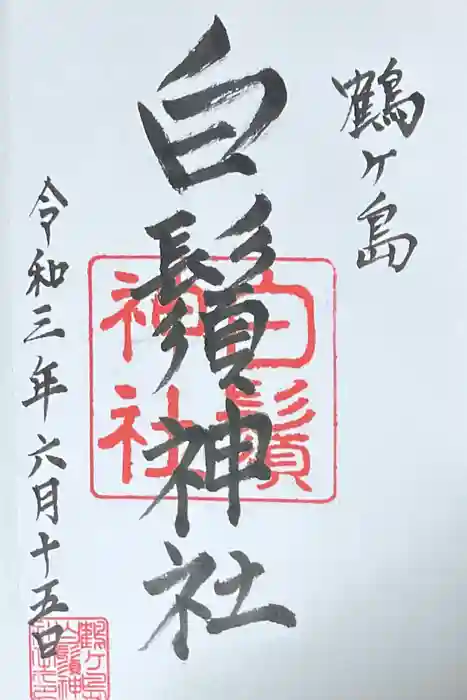 鶴ヶ島
白鬚神社
白鬚
神社
令和三年六月十五日
鶴ヶ島
白鬚神